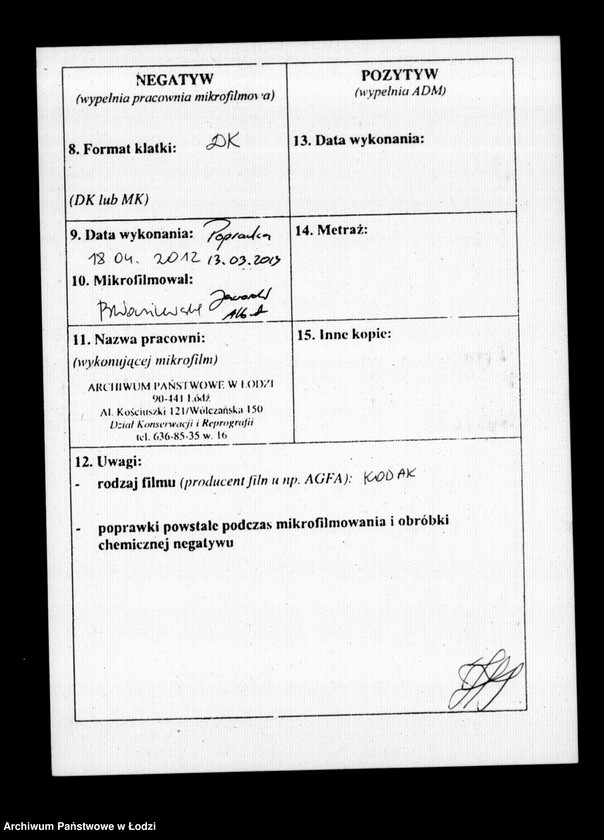 NEGATYW
(wypełnia pracownia mikrofilmowa)
8. Format klatki: DK
(DK lub MK)
9. Data wykonania: Poprawka
18 04. 2012 13.03.2013
10. Mikrofilmował:
11. Nazwa pracowni:
(wykonującej mikrofilm)
ARCHIWUM PAŃSTWOWE W ŁODZI
90-441 Łódź
Al. Kościuszki 121/Wólczańska 150
Dział Konserwacji i Reprografii
tel. 636-85-35 w. 16
POZYTYW
(wypełnia ADM)
13. Data wykonania:
14. Metraż:
15. Inne kopie:
12. Uwagi:
- rodzaj filmu (producent filmu np. AGFA): KODAK
- poprawki powstałe podczas mikrofilmowania i obróbki
chemicznej negatywu
Archiwum Państwowe w Łodzi